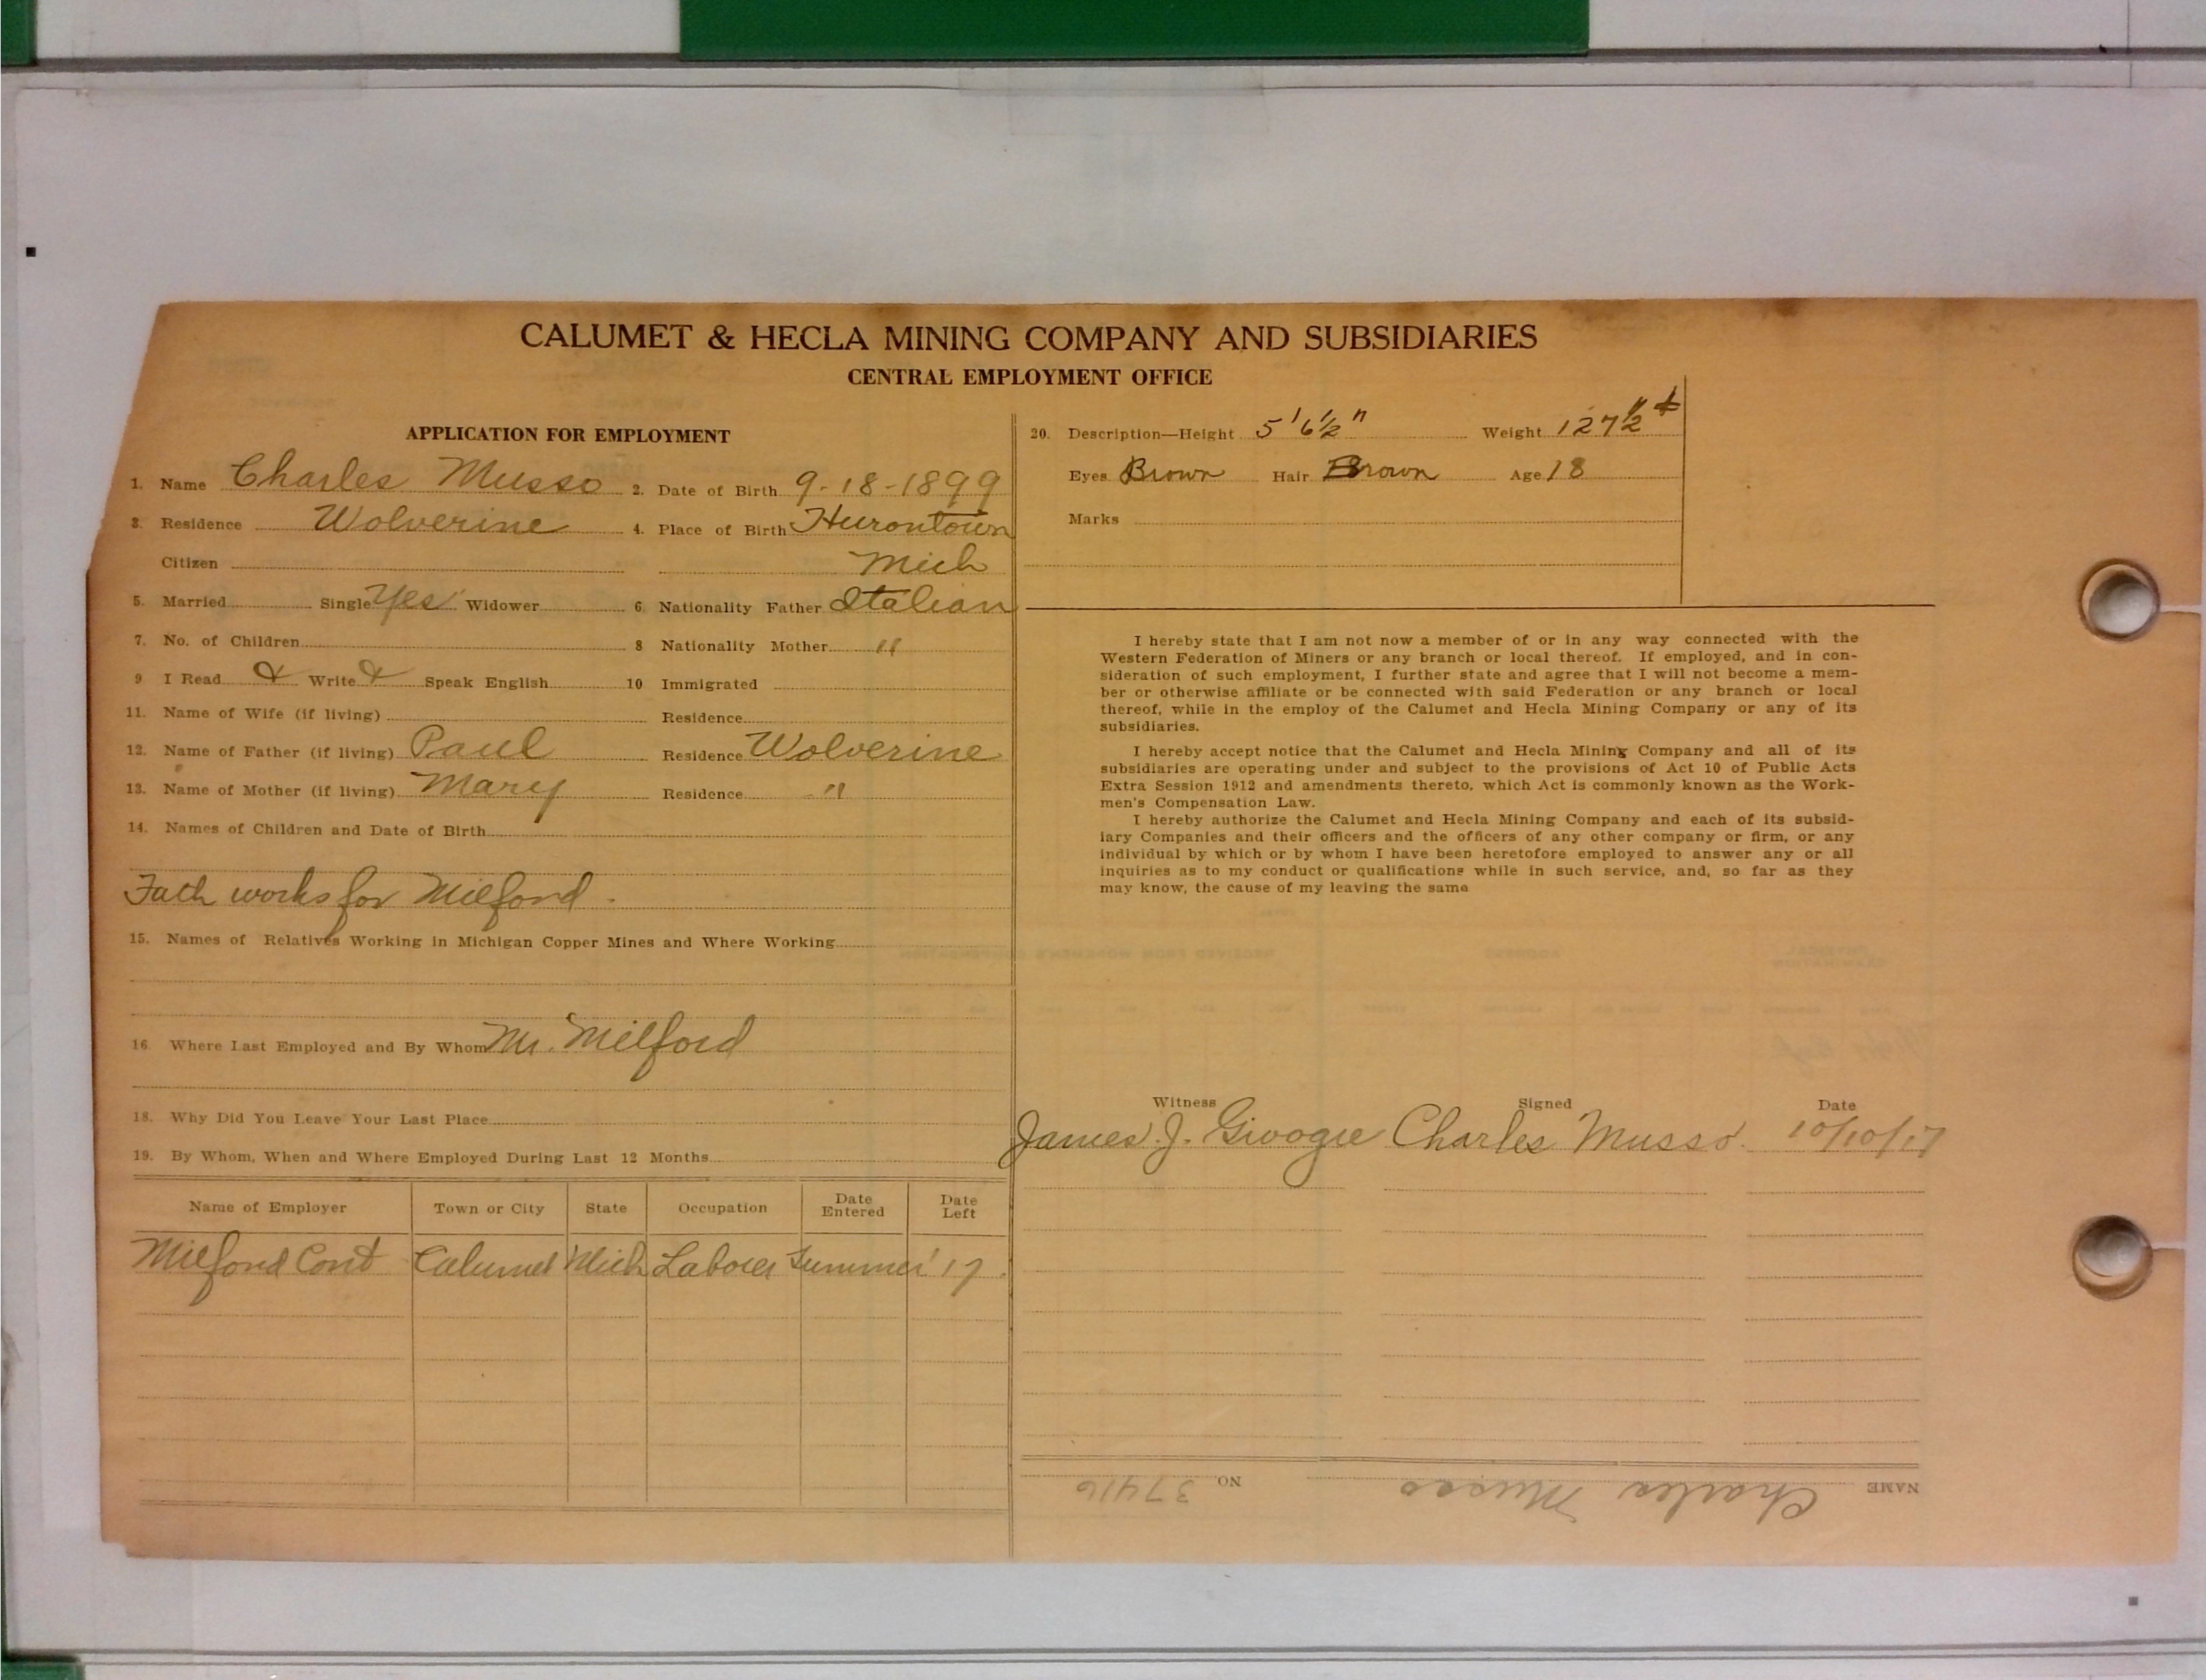 CALUMET & HECLA MINING COMPANY AND SUBSIDIARIES
CENTRAL EMPLOYMENT OFFICE
APPLICATION FOR EMPLOYMENT
1. Name Charles Musso 2. Date of Birth 9-18-1899
3. Residence Wolverine 4. Place of Birth Hurontown
Citizen Mich
5. Married Single Yes Widower 6. Nationality Father Italian
7. No. of Children 8 Nationality Mother "
9 I Read & Write & Speak English 10 Immigrated
11. Name of Wife (if living) Residence
12. Name of Father (if living) Paul Residence Wolverine
13. Name of Mother (if living) Mary Residence "
14. Names of Children and Date of Birth
Fath works for Milford.
15. Names of Relatives Working in Michigan Copper Mines and Where Working
16. Where Last Employed and By Whom Mr. Milford
18. Why Did You Leave Your Last Place
19. By Whom, When and Where Employed During Last 12 Months
Name of Employer Town or City State Occupation Date Entered Date Left
Milford Cont Calumet Mich Laborer Summer '17.
20. Description—Height 5' 6½" Weight 127½
Eyes Brown Hair Brown Age 18
Marks
I hereby state that I am not now a member of or in any way connected with the
Western Federation of Miners or any branch or local thereof. If employed, and in con-
sideration of such employment, I further state and agree that I will not become a mem-
ber or otherwise affiliate or be connected with said Federation or any branch or local
thereof, while in the employ of the Calumet and Hecla Mining Company or any of its
subsidiaries.
I hereby accept notice that the Calumet and Hecla Mining Company and all of its
subsidiaries are operating under and subject to the provisions of Act 10 of Public Acts
Extra Session 1912 and amendments thereto, which Act is commonly known as the Work-
men's Compensation Law.
I hereby authorize the Calumet and Hecla Mining Company and each of its subsid-
iary Companies and their officers and the officers of any other company or firm, or any
individual by which or by whom I have been heretofore employed to answer any or all
inquiries as to my conduct or qualifications while in such service, and, so far as they
may know, the cause of my leaving the same
Witness Signed Date
James J. Charles Musso. 10/10/17
NAME Charles Musso NO. 37416